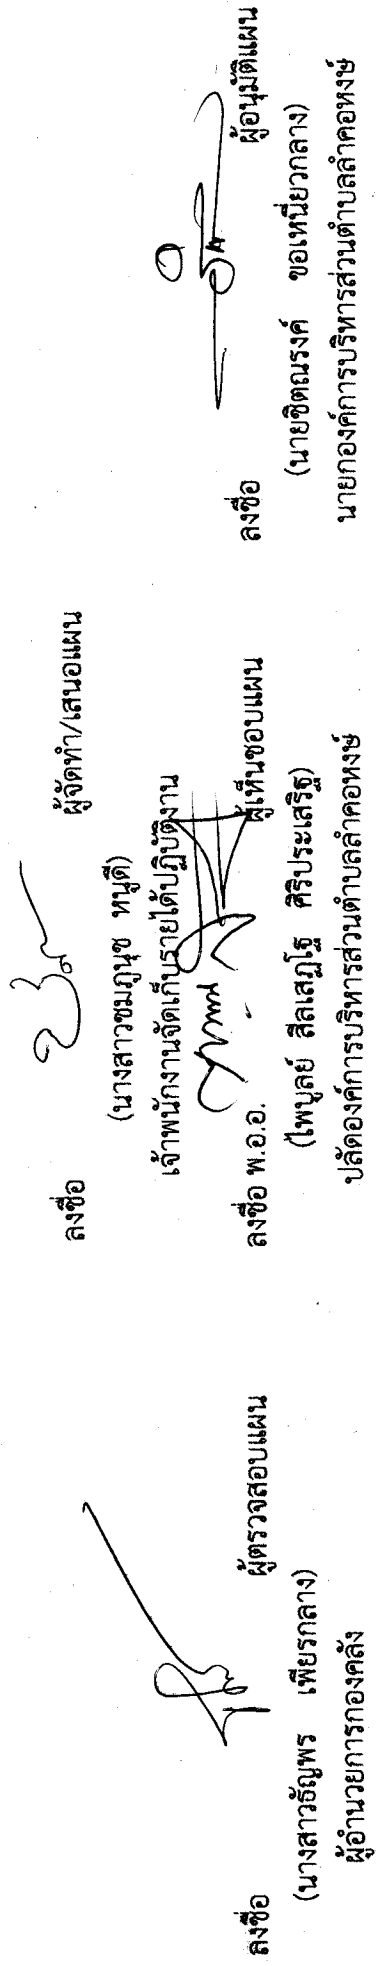 ลงชื่อ ผู้จัดทำ/เสนอแผน
(นางสาวชมภูนุช หนูดี)
เจ้าพนักงานจัดเก็บรายได้ปฏิบัติงาน
ลงชื่อ ผู้ตรวจสอบแผน
(นางสาวธัญพร เพียรกลาง)
ผู้อำนวยการกองคลัง
ลงชื่อ พ.อ.อ. ผู้เห็นชอบแผน
(ไพบูลย์ สีลเสฏโฐ ศิริประเสริฐ)
ปลัดองค์การบริหารส่วนตำบลลำคอหงษ์
ลงชื่อ ผู้อนุมัติแผน
(นายชิตณรงค์ ขอเหนี่ยวกลาง)
นายกองค์การบริหารส่วนตำบลลำคอหงษ์